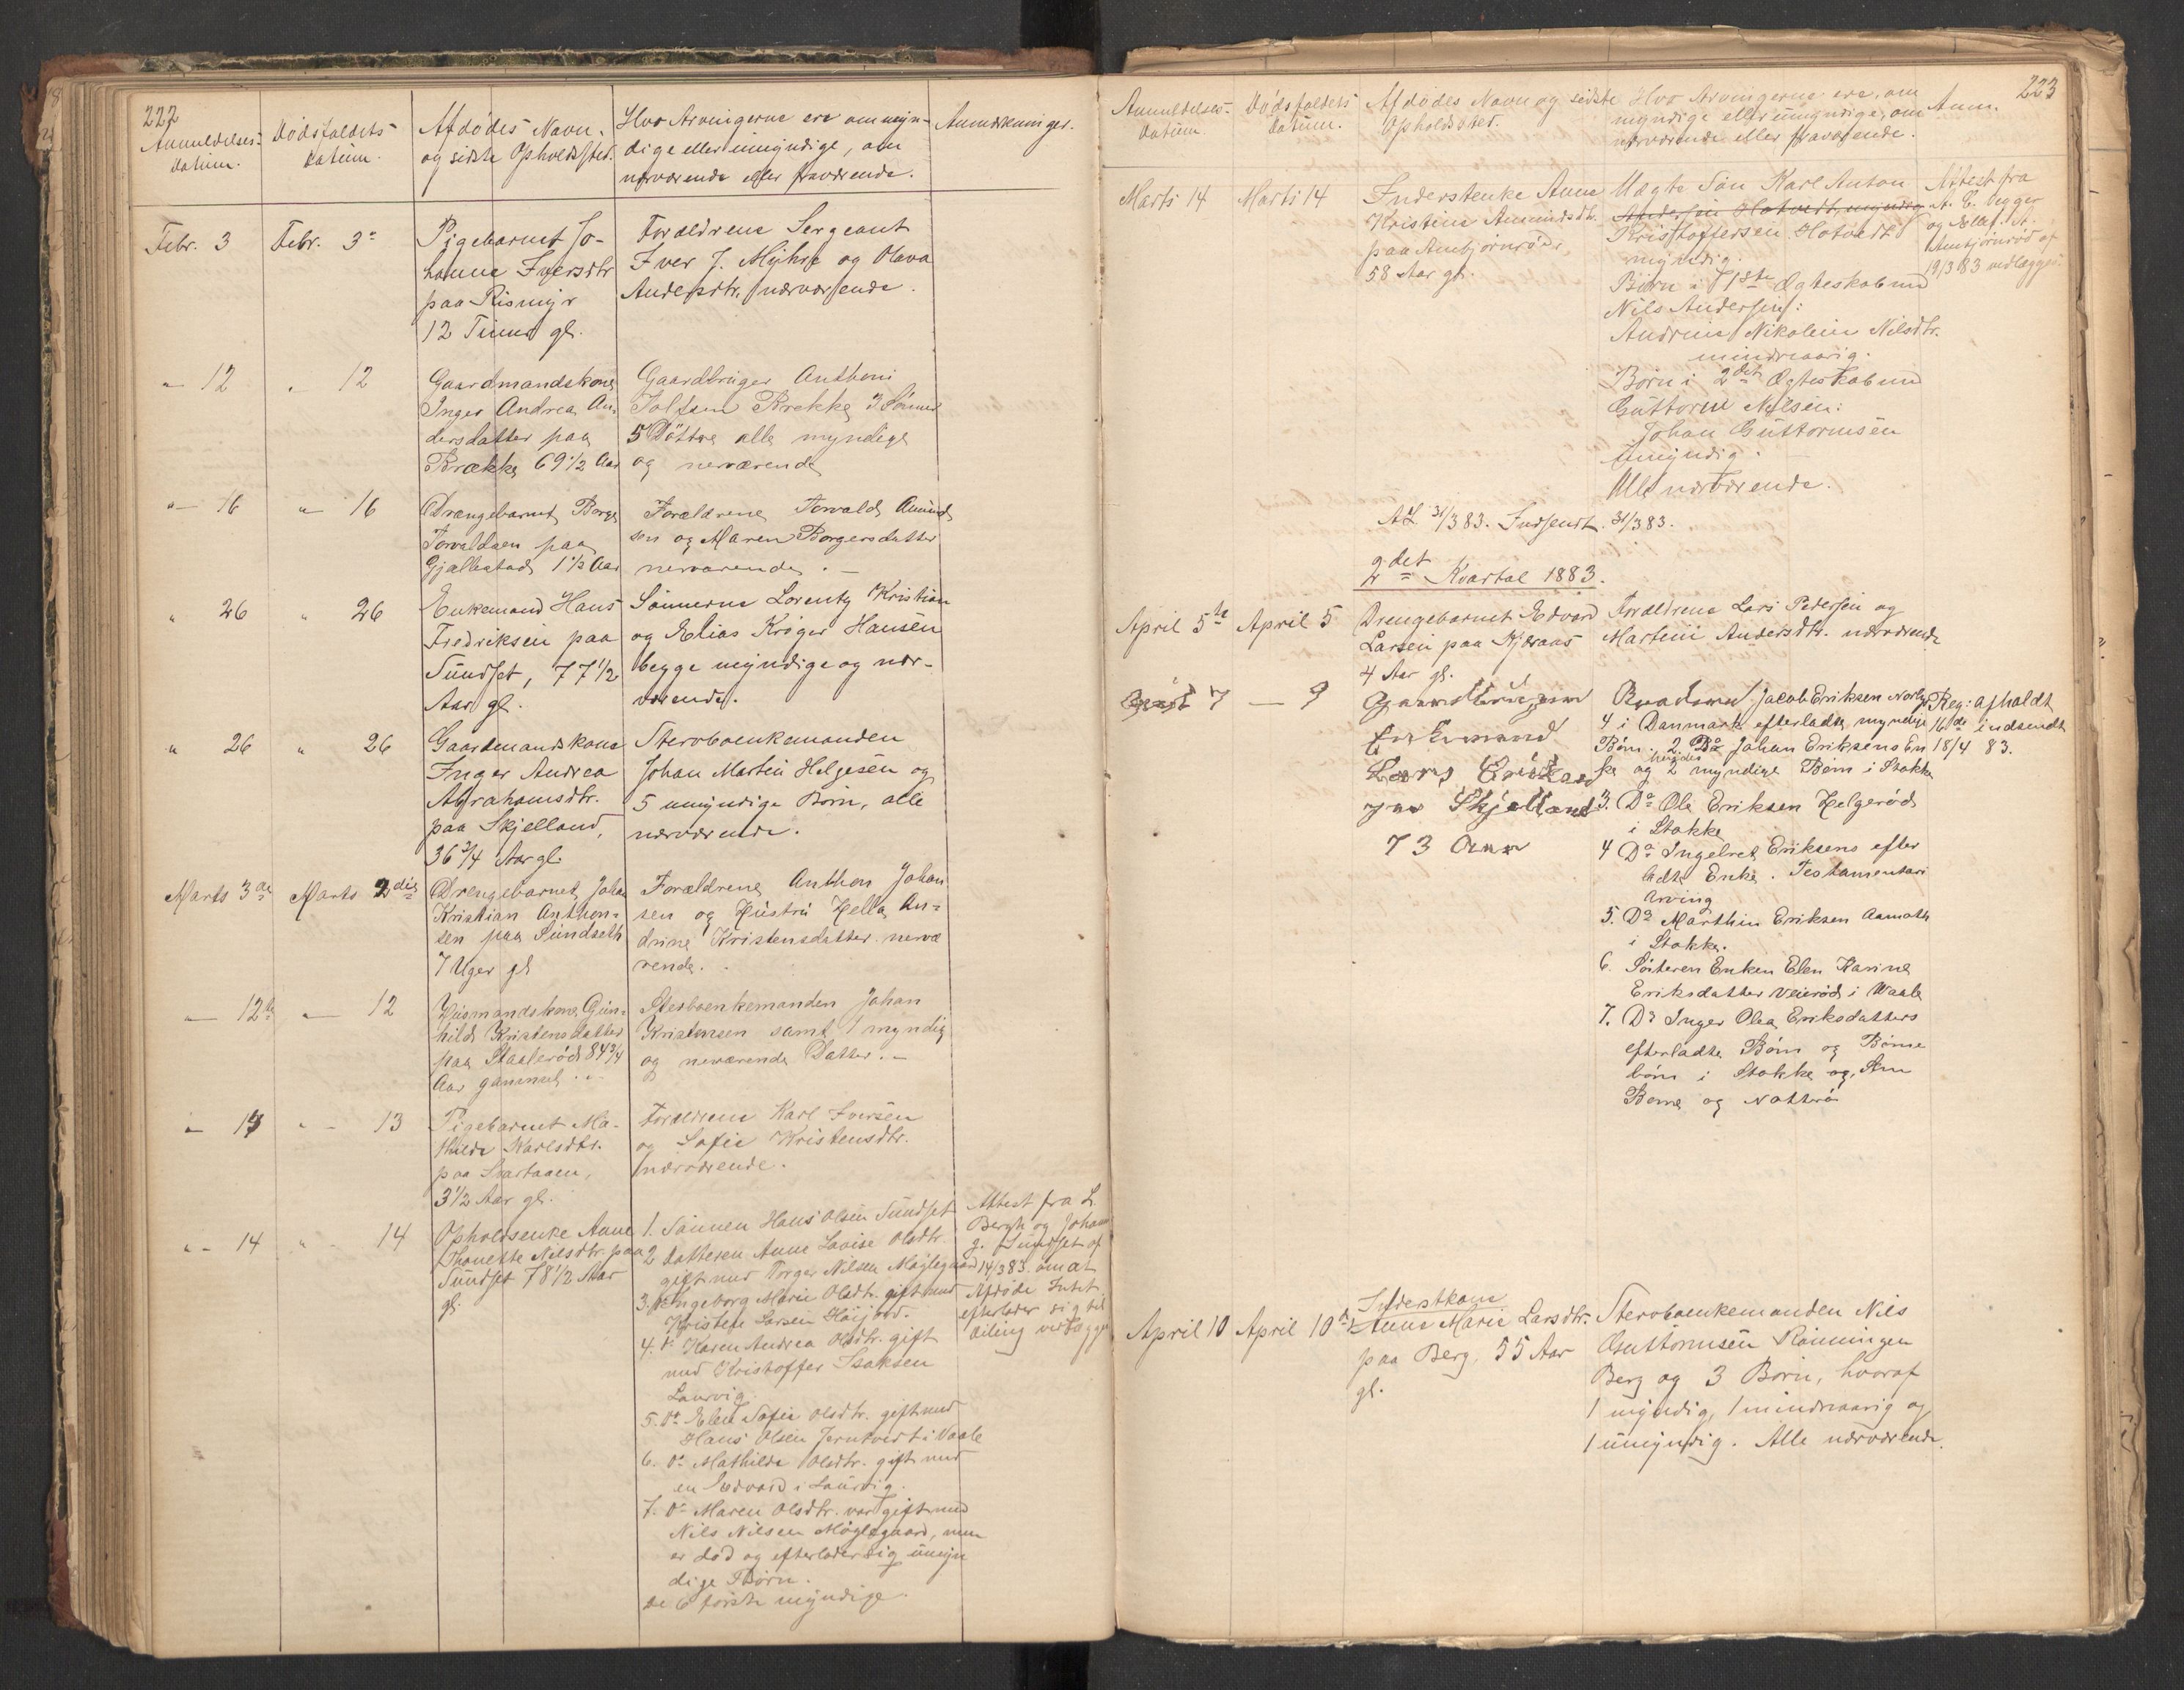 222
Anmeldelses-
datum.
Dødsfaldets
datum.
Afdødes Navn
og sidste Opholdssted.
Hvo Arvingerne ere om myn-
dige eller umyndige, om
nærværende eller fraværende.
Anmærkninger.
Febr. 3
Febr. 3
Pigebarnet Jo-
hanne Iversdtr
paa Rismyr
12 Timer gl.
Forældrene Sergeant
Iver J. Myhre og Olava
Andersdtr. nærværende.
" 12
" 12
Gaardmandskone
Inger Andrea An-
dersdatter paa
Brække 69 1/2 Aar
Gaardbruger Anthoni
Brekke 3 Sønner
5 Døttre alle myndige
og nerværende
" 16
" 16
Drengebarnet Borge
Torvaldsen paa
Gjællestad 1 1/2 Aar
Forældrene Torvald Amund
sen og Maren Borgersdatter
nerværende. —
" 26
" 26
Enkemand Hans
Fredriksen paa
Sundset, 77 1/2
Aar gl.
Sønnerne Lorentz Kristian
og Elias Krøger Hansen
begge myndige og nær-
værende.
" 26
" 26
Gaardmandskone
Inger Andrea
Abrahamsdtr.
paa Skjelland,
36 3/4 Aar gl.
Stervboenkemanden
Johan Martin Helgesen og
5 umyndige Børn, alle
nærværende.
Marts 3die
Marts 2die
Drengebarnet Johan
Kristian Anthon-
sen paa Sundseth
7 Uger gl
Forældrene Anthon Johan
sen og Hustru Hella An-
drine Kristensdatter nervæ
rende.
— 12te
— 12
Husmandskone Gun-
hild Kristensdatter
paa Staalerød 84 3/4
Aar gammel.
Stervboenkemanden Johan
Kristensen samt 1 myndig
og nerværende Datter. —
" 13
" 13
Pigebarnet Ma-
thilde Karlsdtr.
paa Svartaaen,
3 1/2 Aar gl.
Forældrene Karl Iversen
og Sofie Kristensdtr.
nærværende.
" 14
" 14
Opholdsenke Anne
Thonette Nilsdtr. paa
Sundset 78 1/2 Aar
gl.
1. Sønnen Hans Olsen Sundset
2 Datteren Anne Lovise Olsdtr.
gift med Torger Nilsen Møglegaard
3. do Ingeborg Marie Olsdtr. gift med
Kristen Larsen Høijord.
4. do Karen Andrea Olsdtr. gift
med Kristoffer Isaksen
Laurvig.
5. do Elen Sofie Olsdtr. gift med
Hans Olsen Jerntvedt i Vaale
6. do Mathilde Olsdtr. gift med
en Edvard i Laurvig.
7. do Maren Olsdtr. var gift med
Nils Nilsen Møglegaard, men
er død og efterlader sig umyn
dige Børn.
de 6 første myndige.
Attest fra L.
Bergh og Johan
J. Sundset af
14/3 83 om at
Afdøde Intet
efterlader sig til
deling vedlægges
223
Anmeldelses-
datum.
Dødsfaldets
datum.
Afdødes Navn og sidste
Opholdssted.
Hvo Arvingerne ere, om
myndige eller umyndige, om
nærværende eller fraværende.
Anm.
Marts 14
Marts 14
Inderstenke Anne
Kristine Amundsdtr.
paa Ambjørnrød,
58 Aar gl.
Uægte Søn Karl Anton
Andersen Hotvedt, myndig
Kristoffersen Hotvedt
myndig.
Børn i 1ste Ægteskab med
Nils Andersen:
Andrine Nikoline Nilsdtr.
mindreaarig.
Børn i 2det Ægteskab med
Guttorm Nilsen:
Johan Guttormsen
umyndig.
Alle nærværende.
Attest fra
A. E. Bugge
og Ellef A.
Ambjørnrød af
19/3 83 vedlægges.
Afl. 31/3 83. Indsendt 31/3 83.
2det Kvartal 1883.
April 5te
April 5
Drengebarnet Edvard
Larsen paa Kjæraas
4 Aar gl.
Forældrene Lars Pedersen og
Martine Andersdtr. nærværende
7
— 9
Gaardbruger
Enkemand
Lars Eriksen
paa Skjelland
73 Aar
Broderen Jacob Eriksen
4 i Danmark efterladte myndige
Børn. 2. Do Johan Eriksens En
ke og 2 myndige Børn i Stokke
3. Do Ole Eriksen Helgerød
i Stokke
4 Do Ingelret Eriksens efter
ladte Enke. Testamentari
Arving
5. Do Marthin Eriksen Aamoth
i Stokke.
6. Søsteren Enken Elen Karine
Eriksdatter Veierød i Waale
7. Do Inger Olea Eriksdatters
efterladte Børn og Børne
børn i Stokke og Sem
Børne og Nøtterø
Reg: afholdt
16de indsendt
18/4 83.
April 10
April 10de
Inderstkone
Anne Marie Larsdtr.
paa Berg, 55 Aar
gl.
Stervboenkemanden Nils
Guttormsen Rønningen
Berg og 3 Børn, hvoraf
1 myndig, 1 mindreaarig og
1 umyndig. Alle nærværende.